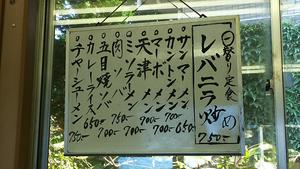 日替り定食
レバニラ炒め
750-
サンマーメン 650-
カントンメン 700-
マーボメン 700-
天津メン 700-
ミソラーメン 700-
肉ソバ 750-
五目焼ソバ 700-
カレーライス 650-
チャーシューメン 750-